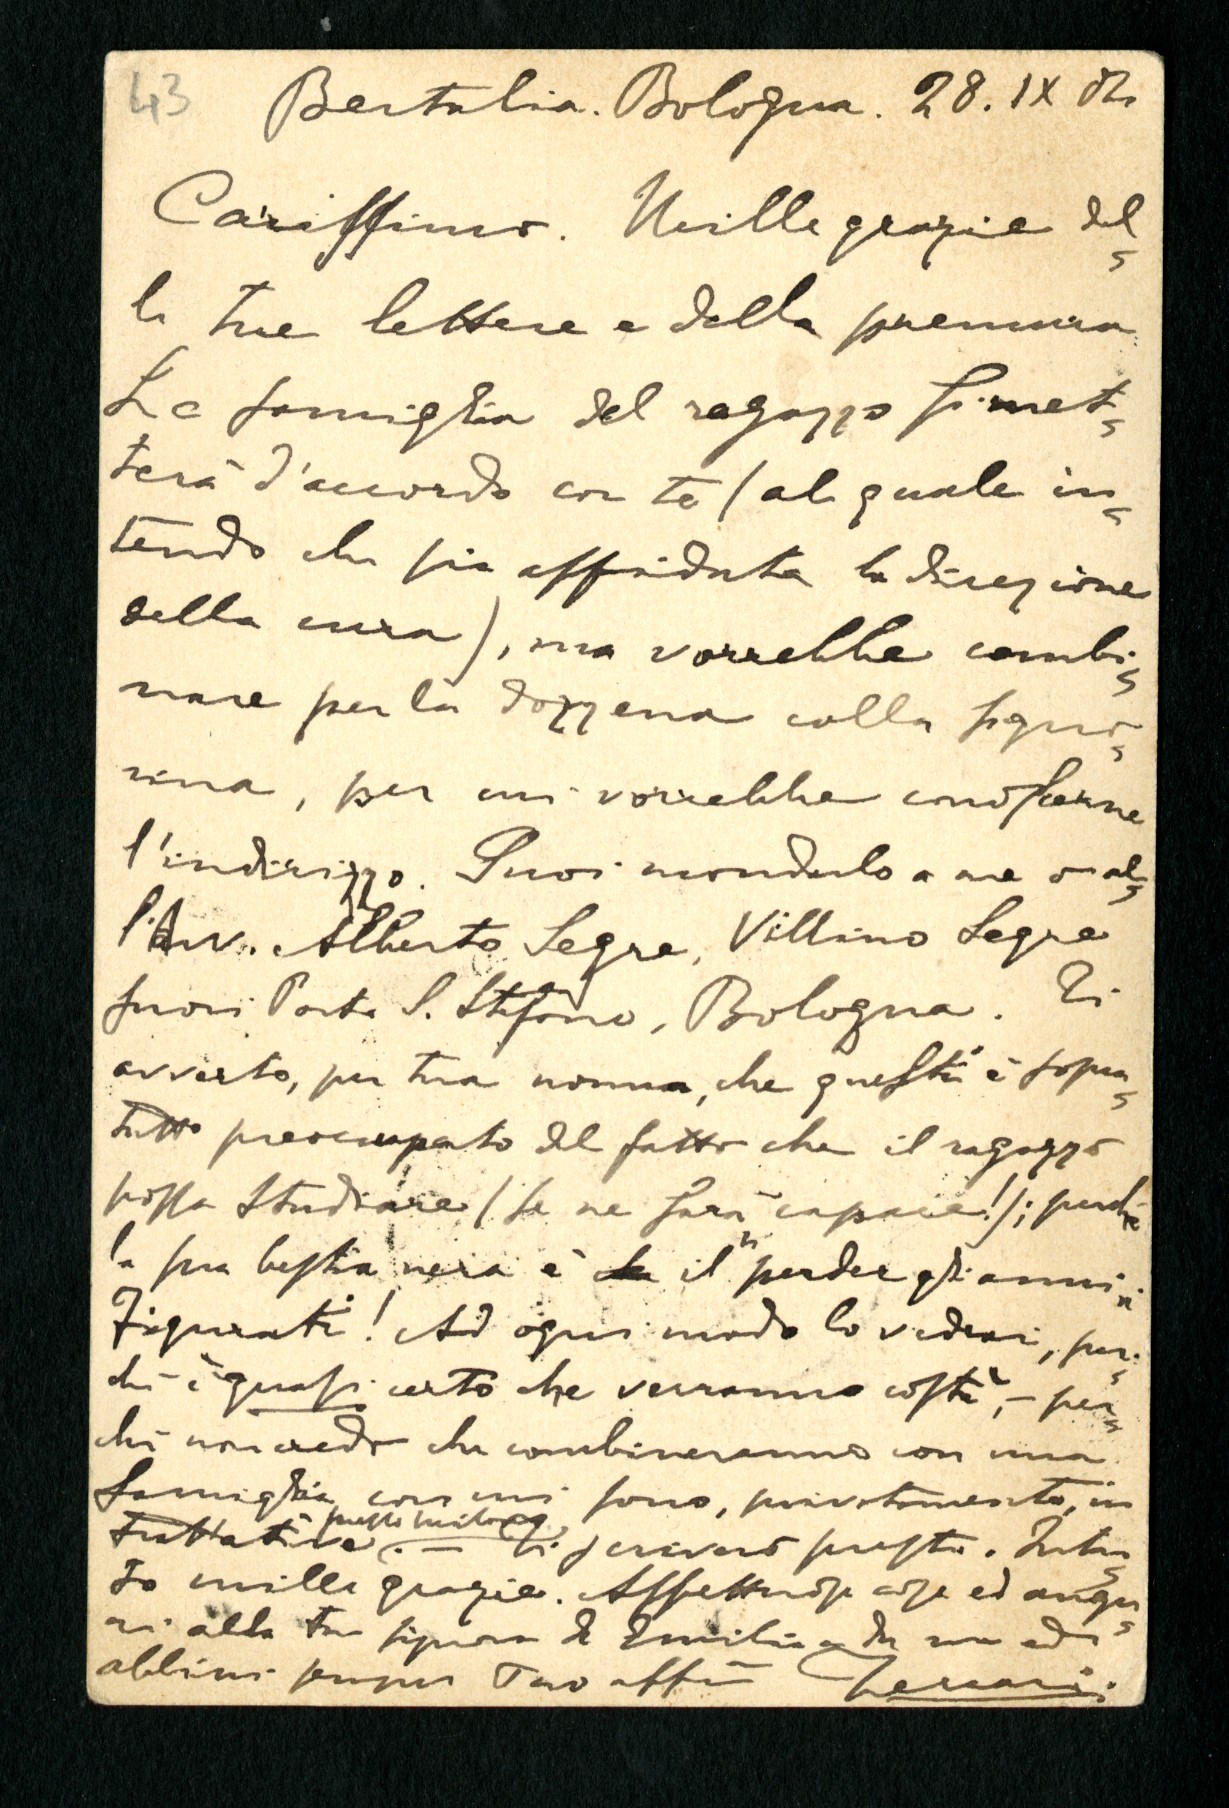 43
Bertalia. Bologna. 28. IX 02
Carissimo. Mille grazie del-
le tue lettere e della premura.
La famiglia del ragazzo si met-
terà d'accordo con te (al quale in-
tendo che sia affidata la direzione
della cura), ma vorrebbe combi-
nare per la dozzena colla signo-
rina, per cui vorrebbe conoscerne
l'indirizzo. Puoi mandarlo a me o al-
l'Avv. Alberto Segre, Villino Segre
fuori Porta S. Stefano, Bologna. Ti
avverto, per tua norma, che questi è sopra-
tutto preoccupato del fatto che il ragazzo
possa studiare (se ne sarà capace!); perchè
la sua bestia nera è il "perder gli anni".
Figurati! Ad ogni modo lo vedrai, per-
chè è quasi certo che verranno costà, - per-
chè non credo che combineranno con una
famiglia con cui sono, privatamente, in
trattative. - Ti scriverò presto. Intan-
to mille grazie. Affettuose cose ed augu-
ri alla tua signora di Emilia e da me ed
abbimi sempre Tuo aff.mo Ferrari.